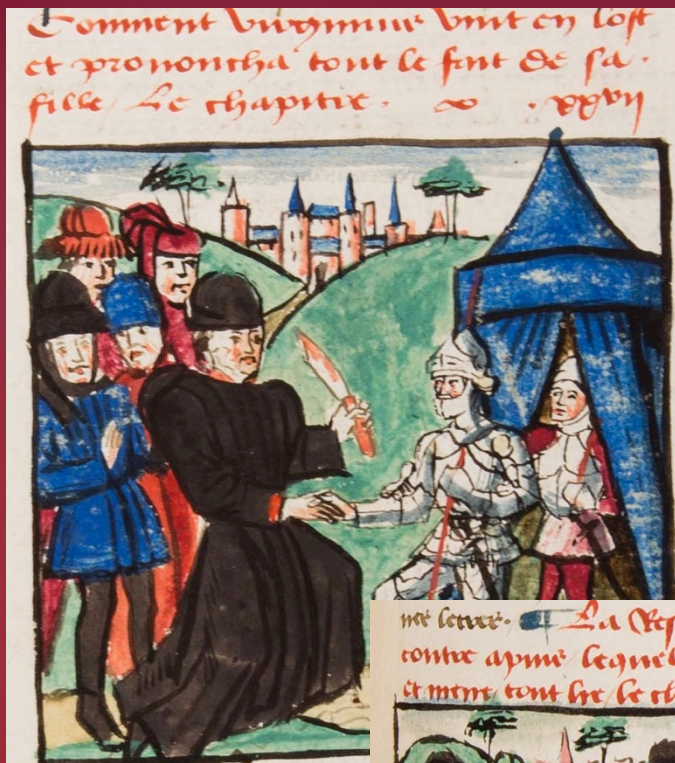 Comment virginius vint en lost
et prononcha tout le fait de sa
fille Le chapitre . xxvii
La Res
contre apius lequel
et ment tout lie le ch